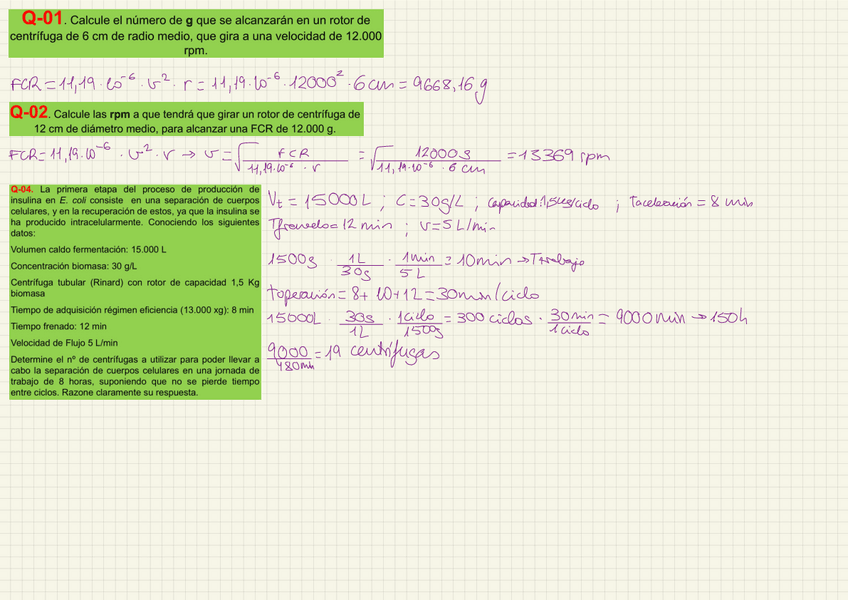 Q-01. Calcule el número de g que se alcanzarán en un rotor de
centrífuga de 6 cm de radio medio, que gira a una velocidad de 12.000
rpm.
FCR = 11,19·10^-6 · v^2 · r = 11,19·10^-6 · 12000^2 · 6 cm = 9668,16 g
Q-02. Calcule las rpm a que tendrá que girar un rotor de centrífuga de
12 cm de diámetro medio, para alcanzar una FCR de 12.000 g.
FCR = 11,19·10^-6 · v^2 · r → v = √(FCR / 11,19·10^-6 · r) = √(12000g / 11,19·10^-6 · 6 cm) = 13369 rpm
Q-04. La primera etapa del proceso de producción de
insulina en E. coli consiste en una separación de cuerpos
celulares, y en la recuperación de estos, ya que la insulina se
ha producido intracelularmente. Conociendo los siguientes
datos:
Volumen caldo fermentación: 15.000 L
Concentración biomasa: 30 g/L
Centrífuga tubular (Rinard) con rotor de capacidad 1,5 Kg
biomasa
Tiempo de adquisición régimen eficiencia (13.000 xg): 8 min
Tiempo frenado: 12 min
Velocidad de Flujo 5 L/min
Determine el nº de centrífugas a utilizar para poder llevar a
cabo la separación de cuerpos celulares en una jornada de
trabajo de 8 horas, suponiendo que no se pierde tiempo
entre ciclos. Razone claramente su respuesta.
Vt = 15000 L ; C = 30g/L ; capacidad: 1,5kg/ciclo ; Taceleración = 8 min
Tfrenado = 12 min ; v = 5 L/min
1500g · 1L/30g · 1min/5L = 10min → Ttrabajo
toperación = 8 + 10 + 12 = 30min/ciclo
15000L · 30g/1L · 1ciclo/1500g = 300 ciclos · 30min/1ciclo = 9000 min → 150h
9000/480min = 19 centrífugas